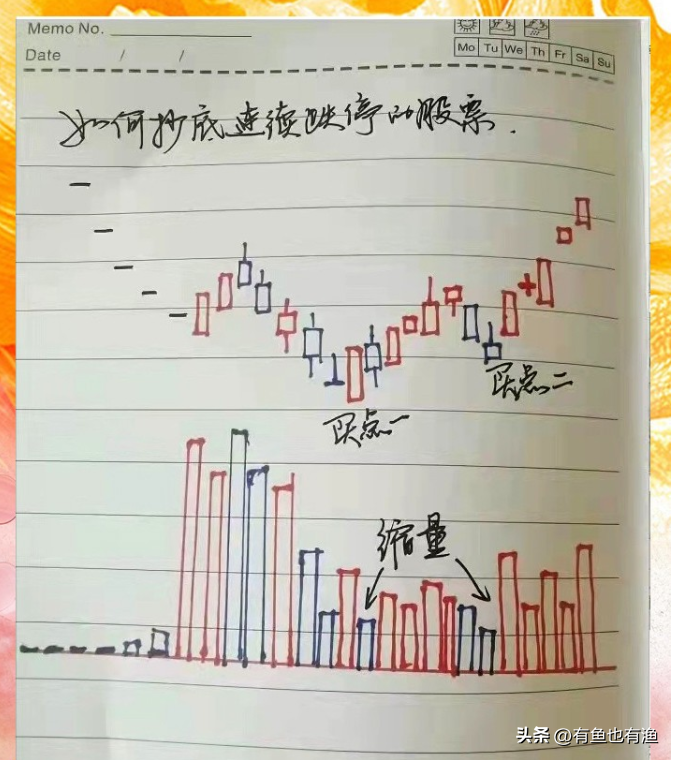 Memo No.
Mo Tu We Th Fr Sa Su
Date / /
如何抄底连续跌停的股票.
买点二
买点一
缩量
头条 @有鱼也有渔